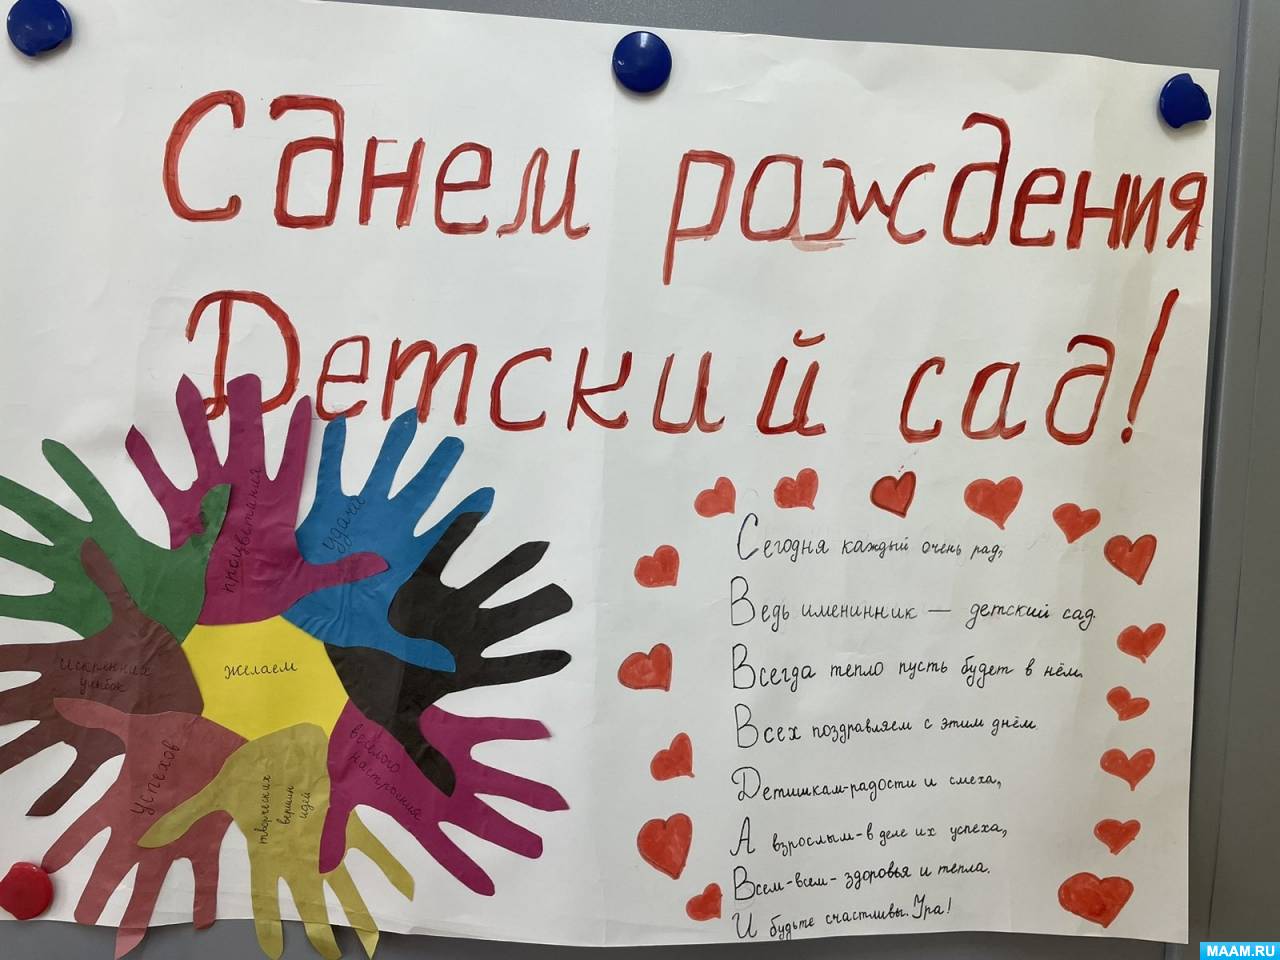 С днем рождения
Детский сад!
процветания
удачи
желаем
искренних
улыбок
успехов
творческих
вершин
идей
весёлого
настроения
Сегодня каждый очень рад,
Ведь именинник — детский сад.
Всегда тепло пусть будет в нём.
Всех поздравляем с этим днём.
Детишкам-радости и смеха,
А взрослым-в деле их успеха,
Всем-всем- здоровья и тепла.
И будьте счастливы. Ура!
MAAM.RU